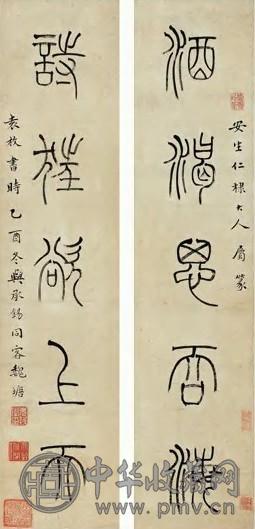 安生仁棣大人属篆
酒渴思吞海
詩狂欲上天
袁枚書時乙酉冬與承錫同客魏塘
中华收藏网
www.pmv.cn